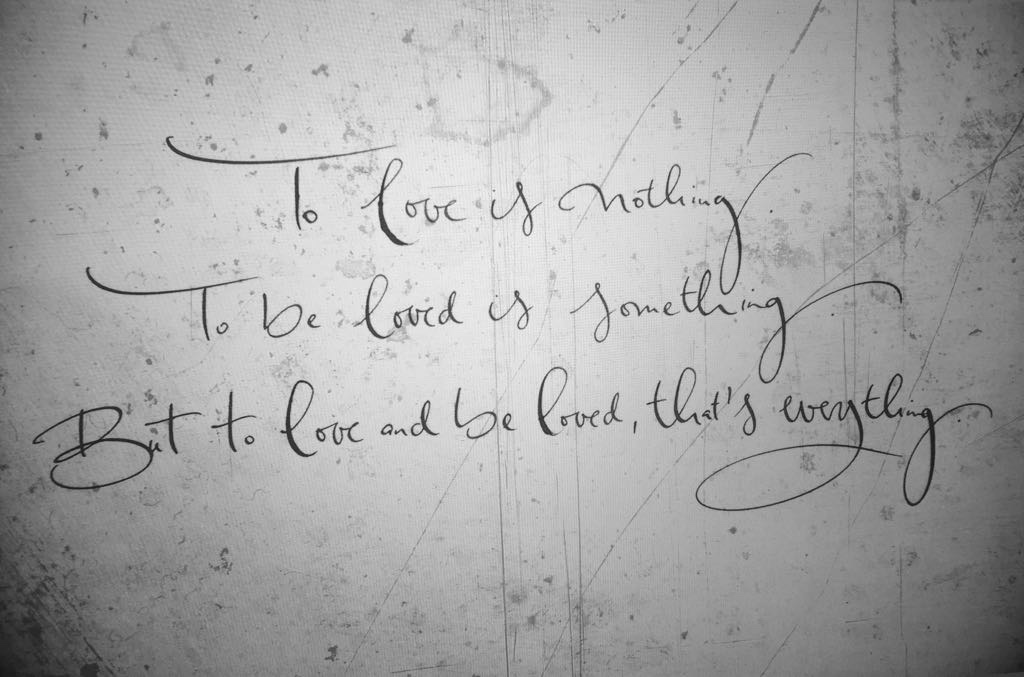 To love is nothing.
To be loved is something.
But to love and be loved, that's everything.